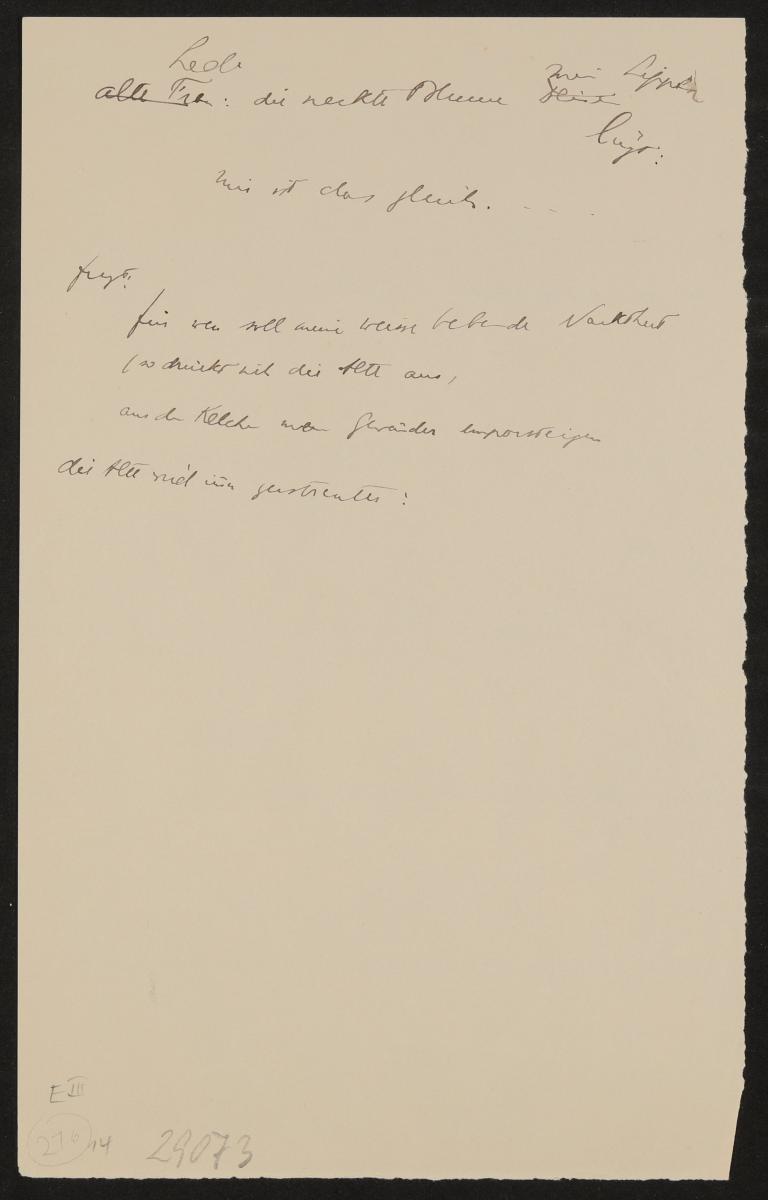 Leda
alte Frau: die nackte Blume zwei Lippen
lügt:
mir ist das gleich. . - - .
fragt:
für wen soll meine weisse bebende Nacktheit
(so drückt sich die Alte aus,
aus dem Kelche meiner Gewänder emporsteigen
die Alte wird nun zerstreuter:
E III
276 14
29073